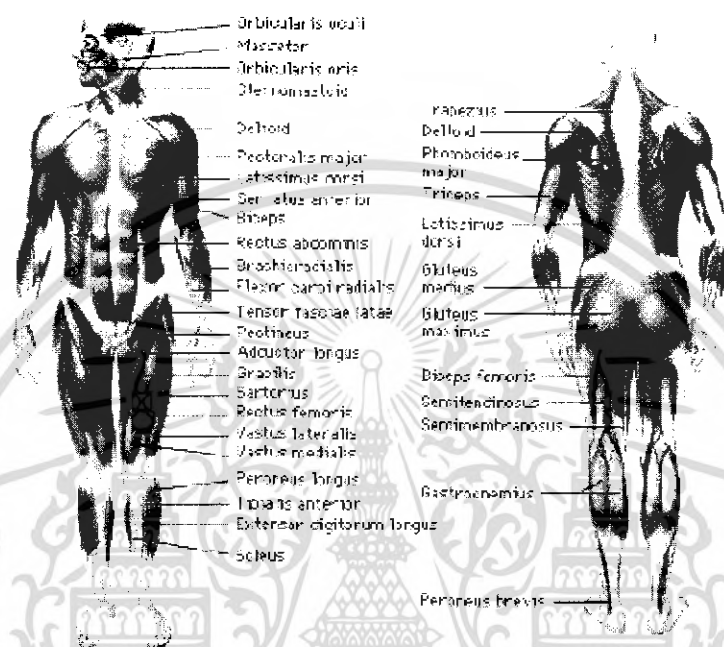 Orbicularis oculi
Masseter
Orbicularis oris
Sternomastoid
Deltoid
Pectoralis major
Latissimus dorsi
Serratus anterior
Biceps
Rectus abdominis
Brachioradialis
Flexor carpi radialis
Tensor fasciae latae
Pectineus
Adductor longus
Gracilis
Sartorius
Rectus femoris
Vastus lateralis
Vastus medialis
Peroneus longus
Tibialis anterior
Extensor digitorum longus
Soleus
Trapezius
Deltoid
Rhomboideus
major
Triceps
Latissimus
dorsi
Gluteus
medius
Gluteus
maximus
Biceps femoris
Semitendinosus
Semimembranosus
Gastrocnemius
Peroneus brevis